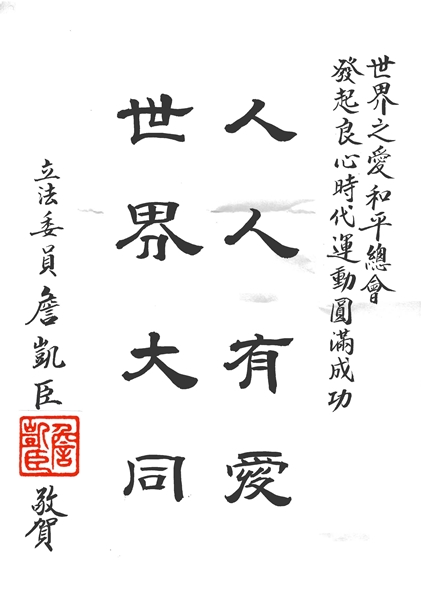 世界之愛和平總會
發起良心時代運動圓滿成功
人人有愛
世界大同
立法委員詹凱臣敬賀
詹凱臣